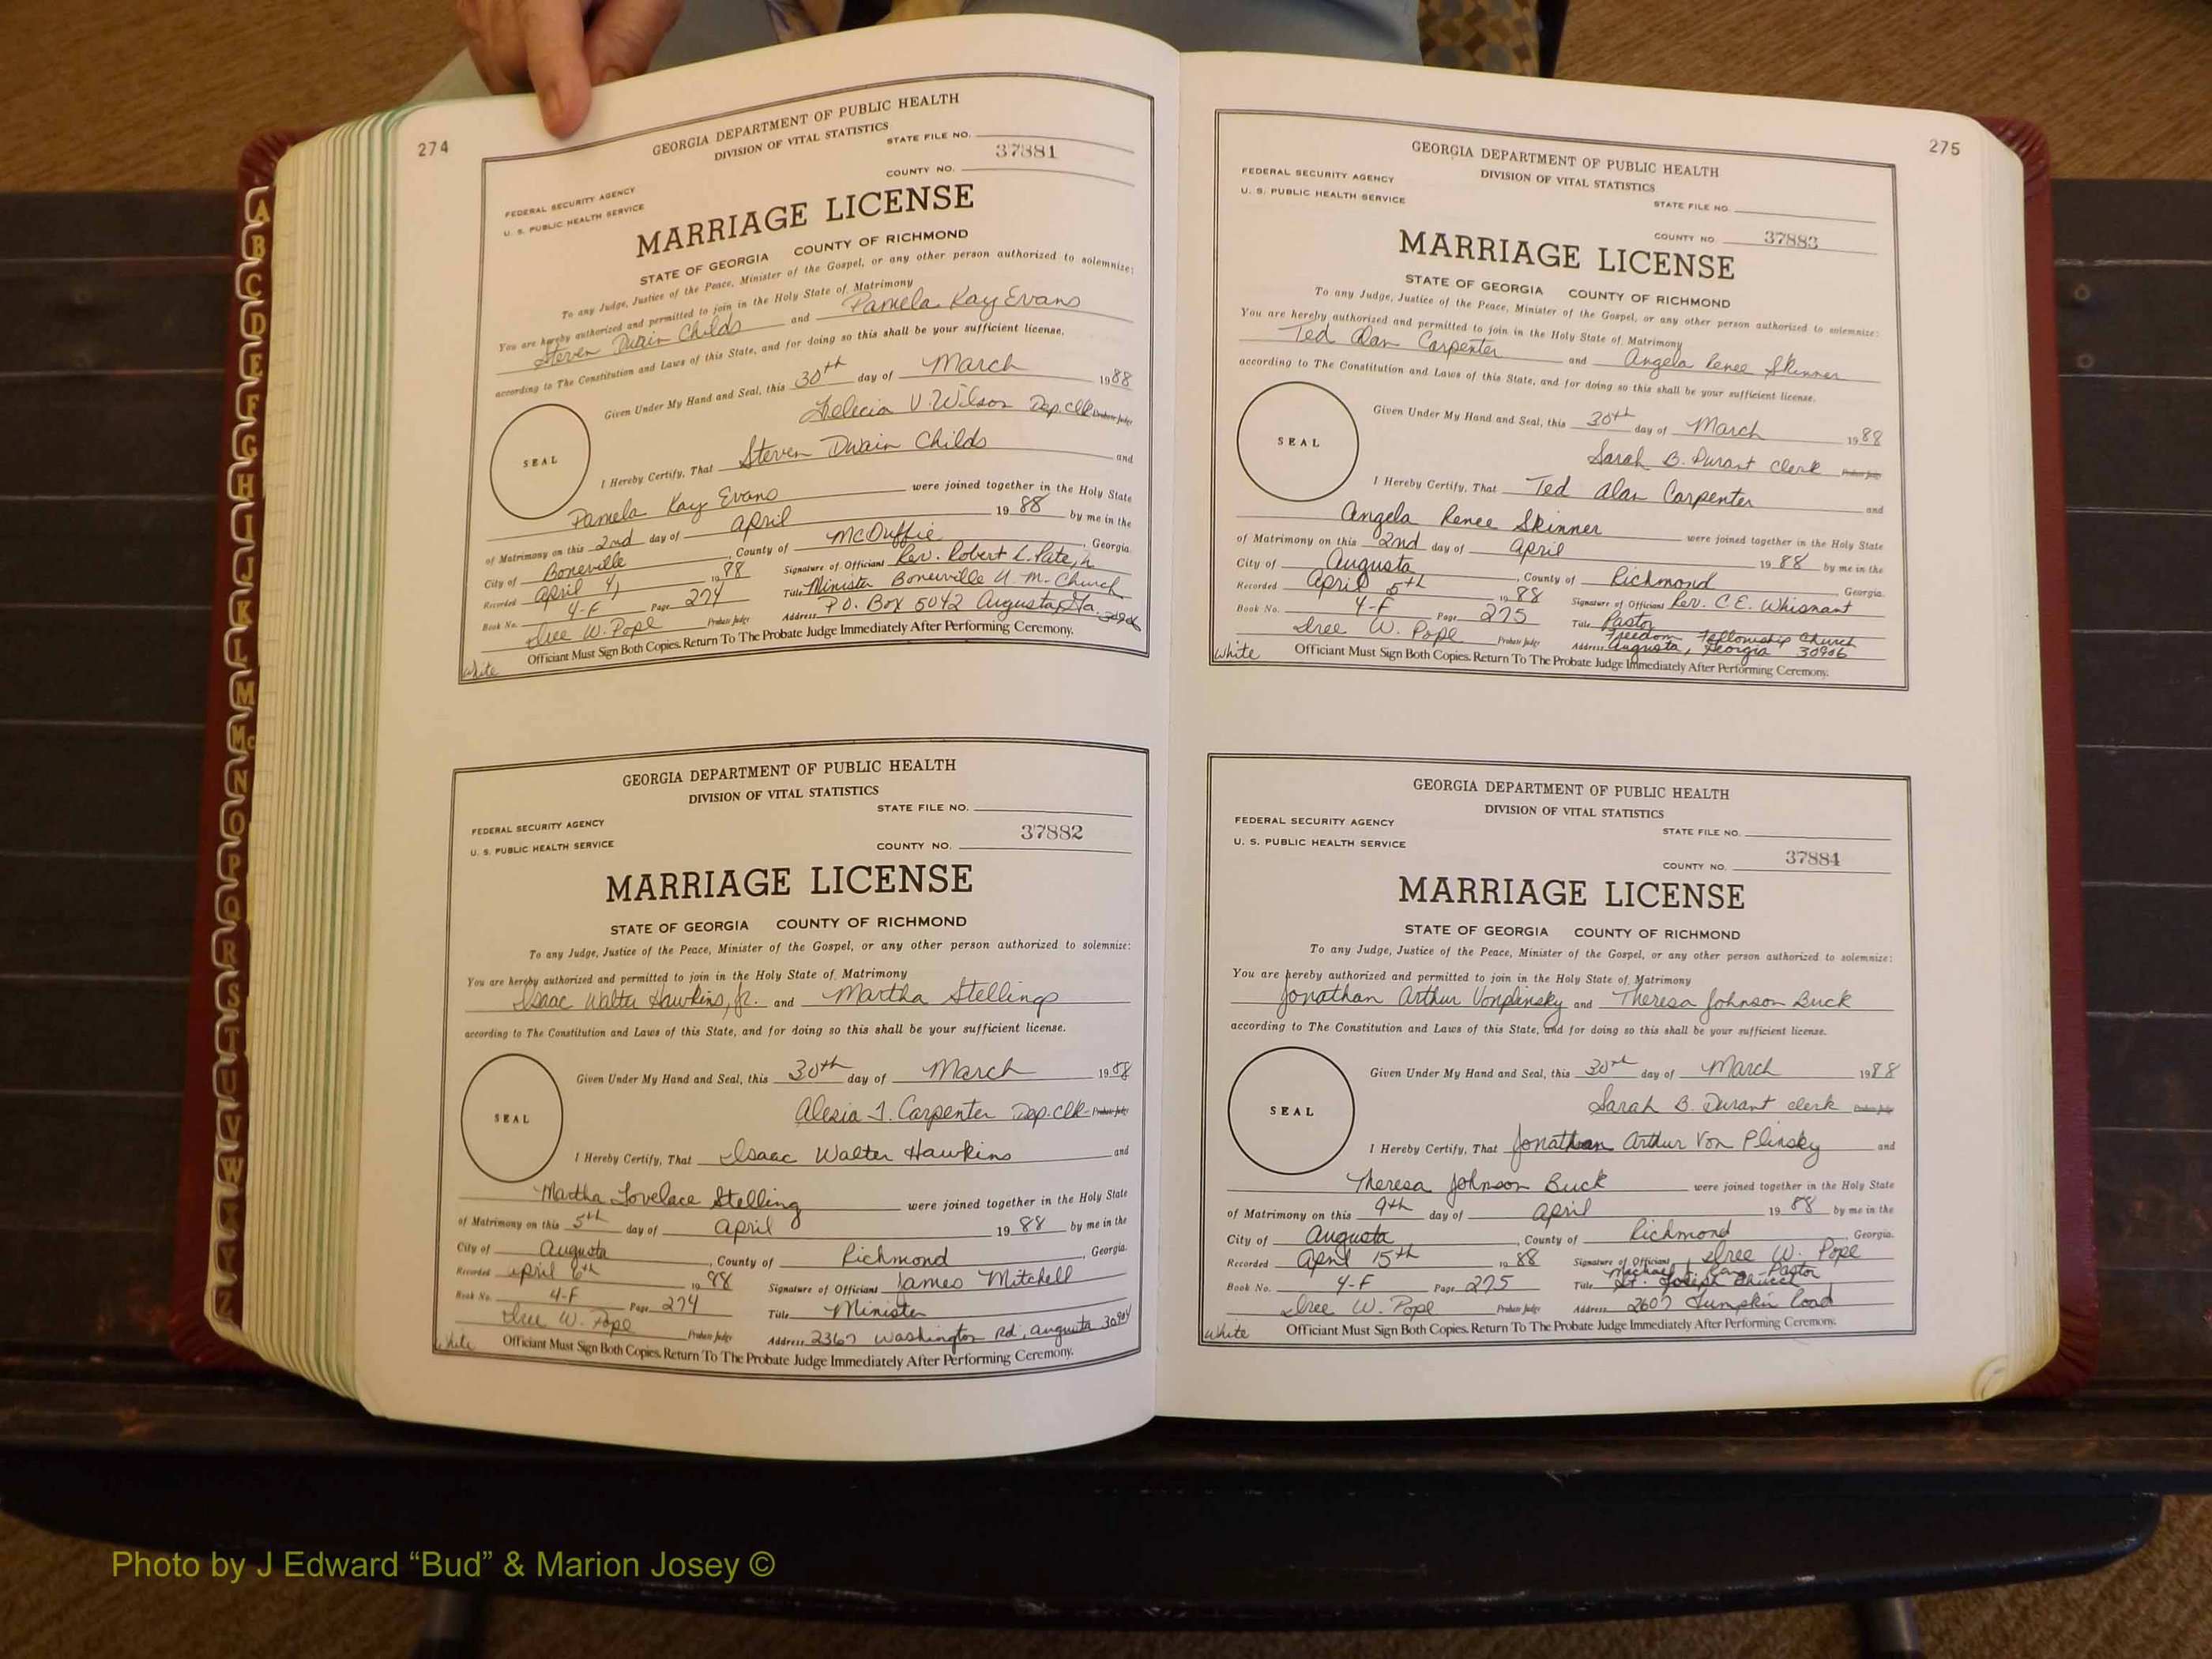 274
GEORGIA DEPARTMENT OF PUBLIC HEALTH
DIVISION OF VITAL STATISTICS
STATE FILE NO.
37881
COUNTY NO.
FEDERAL SECURITY AGENCY
U. S. PUBLIC HEALTH SERVICE
MARRIAGE LICENSE
STATE OF GEORGIA COUNTY OF RICHMOND
To any Judge, Justice of the Peace, Minister of the Gospel, or any other person authorized to solemnize:
You are hereby authorized and permitted to join in the Holy State of Matrimony
Steven Dwain Childs and Pamela Kay Evans
according to The Constitution and Laws of this State, and for doing so this shall be your sufficient license.
Given Under My Hand and Seal, this 30th day of March 1988
Felecia V Wilson Dep. Clk Probate Judge
SEAL
I Hereby Certify, That Steven Dwain Childs and
Pamela Kay Evans were joined together in the Holy State
of Matrimony on this 2nd day of April 19 88 by me in the
City of Boneville, County of McDuffie, Georgia.
Recorded April 4, 1988 Signature of Officiant Rev. Robert L. Pate, Jr.
Book No. 4-F Page 274 Title Minister Boneville U. M. Church
Iree W. Pope Probate Judge Address P.O. Box 5042 Augusta, Ga. 30906
White Officiant Must Sign Both Copies. Return To The Probate Judge Immediately After Performing Ceremony.
GEORGIA DEPARTMENT OF PUBLIC HEALTH
DIVISION OF VITAL STATISTICS
STATE FILE NO.
FEDERAL SECURITY AGENCY
37882
U. S. PUBLIC HEALTH SERVICE COUNTY NO.
MARRIAGE LICENSE
STATE OF GEORGIA COUNTY OF RICHMOND
To any Judge, Justice of the Peace, Minister of the Gospel, or any other person authorized to solemnize:
You are hereby authorized and permitted to join in the Holy State of Matrimony
Isaac Walter Hawkins, Jr. and Martha Stelling
according to The Constitution and Laws of this State, and for doing so this shall be your sufficient license.
Given Under My Hand and Seal, this 30th day of March 1988
Alesia J. Carpenter Dep. Clk Probate Judge
SEAL
I Hereby Certify, That Isaac Walter Hawkins and
Martha Lovelace Stelling were joined together in the Holy State
of Matrimony on this 5th day of April 19 88 by me in the
City of Augusta, County of Richmond, Georgia.
Recorded April 6th 1988 Signature of Officiant James Mitchell
Book No. 4-F Page 274 Title Minister
Iree W. Pope Probate Judge Address 2367 Washington Rd, Augusta 30904
White Officiant Must Sign Both Copies. Return To The Probate Judge Immediately After Performing Ceremony.
275
GEORGIA DEPARTMENT OF PUBLIC HEALTH
DIVISION OF VITAL STATISTICS
FEDERAL SECURITY AGENCY
U. S. PUBLIC HEALTH SERVICE
STATE FILE NO.
COUNTY NO. 37883
MARRIAGE LICENSE
STATE OF GEORGIA COUNTY OF RICHMOND
To any Judge, Justice of the Peace, Minister of the Gospel, or any other person authorized to solemnize:
You are hereby authorized and permitted to join in the Holy State of Matrimony
Ted Alan Carpenter and Angela Renee Skinner
according to The Constitution and Laws of this State, and for doing so this shall be your sufficient license.
Given Under My Hand and Seal, this 30th day of March 1988
Sarah B. Durant Clerk Probate Judge
SEAL
I Hereby Certify, That Ted Alan Carpenter and
Angela Renee Skinner were joined together in the Holy State
of Matrimony on this 2nd day of April 19 88 by me in the
City of Augusta, County of Richmond Georgia.
Recorded April 5th 1988 Signature of Officiant Rev. C.E. Whisnant
Book No. 4-F Page 275 Title Pastor
Freedom Fellowship Church
Iree W. Pope Probate Judge Address Augusta, Georgia 30906
White Officiant Must Sign Both Copies. Return To The Probate Judge Immediately After Performing Ceremony.
GEORGIA DEPARTMENT OF PUBLIC HEALTH
DIVISION OF VITAL STATISTICS
FEDERAL SECURITY AGENCY
STATE FILE NO.
U. S. PUBLIC HEALTH SERVICE
COUNTY NO. 37884
MARRIAGE LICENSE
STATE OF GEORGIA COUNTY OF RICHMOND
To any Judge, Justice of the Peace, Minister of the Gospel, or any other person authorized to solemnize:
You are hereby authorized and permitted to join in the Holy State of Matrimony
Jonathan Arthur Vonplinsky and Theresa Johnson Buck
according to The Constitution and Laws of this State, and for doing so this shall be your sufficient license.
Given Under My Hand and Seal, this 30th day of March 1988
Sarah B. Durant clerk Probate Judge
SEAL
I Hereby Certify, That Jonathan Arthur Von Plinsky and
Theresa Johnson Buck were joined together in the Holy State
of Matrimony on this 9th day of April 19 88 by me in the
City of Augusta, County of Richmond, Georgia.
Recorded April 15th 1988 Signature of Officiant Iree W. Pope
Michael J. Pastor
Book No. 4-F Page 275 Title St. Joseph Church
Iree W. Pope Probate Judge Address 2607 Lumpkin Road
White Officiant Must Sign Both Copies. Return To The Probate Judge Immediately After Performing Ceremony.
A
B
C
D
E
F
G
H
I
J
K
L
M
Mc
N
O
P
Q
R
S
T
U
V
W
X
Y
Z
Photo by J Edward “Bud” & Marion Josey ©